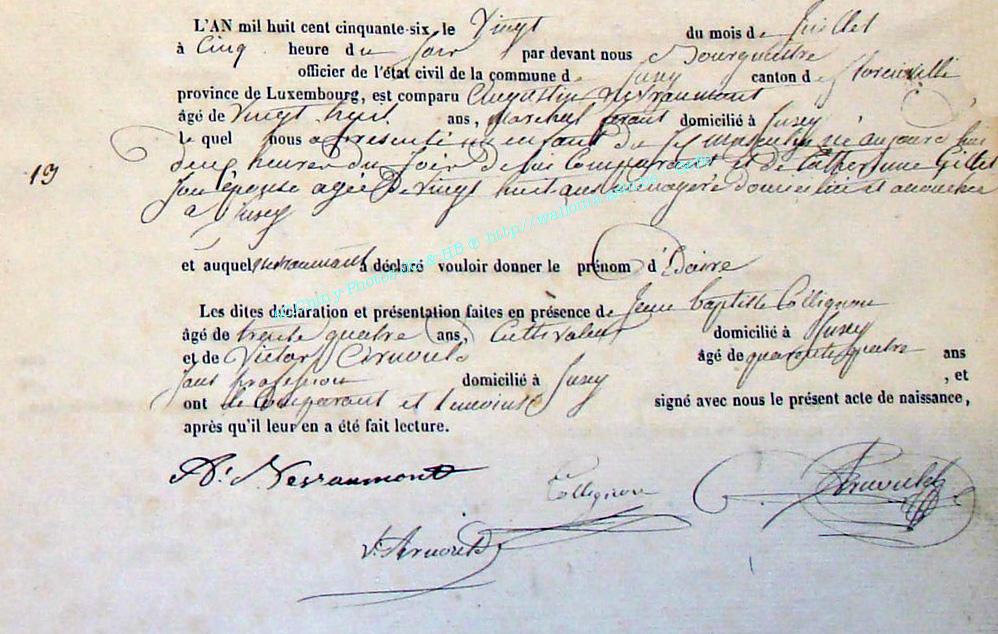 L'AN mil huit cent cinquante-six, le Vingt du mois de Juillet
à Cinq heure du Soir par devant nous Bourguestre
officier de l'état civil de la commune de Jusey canton de florenville
province de Luxembourg, est comparu Augustin Nesraumont
âgé de Vingt huit ans, Marechal ferant domicilié à Jusey
le quel Nous a presenté un enfant du Sexe masculin né aujourd'hui
13
deux heures du Soir de lui Comparant et de Catherinne Gillet
Son épouse agée de Vingt huit ans menagere domiciliée et accouchée
a Jusey
et auquel Nesraumont a déclaré vouloir donner le prénom d'Edaire
Les dites déclaration et présentation faites en présence de Jean baptiste Collignon
âgé de trente quatre ans, Cultivateur domicilié à Jusey
et de Victor Arnould âgé de quarente quatre ans
Sans profession domicilié à Jusey , et
ont le Comparant et temoins signé avec nous le présent acte de naissance,
après qu'il leur en a été fait lecture.
At. Nesraumont
Collignon
Arnould
V. Arnould